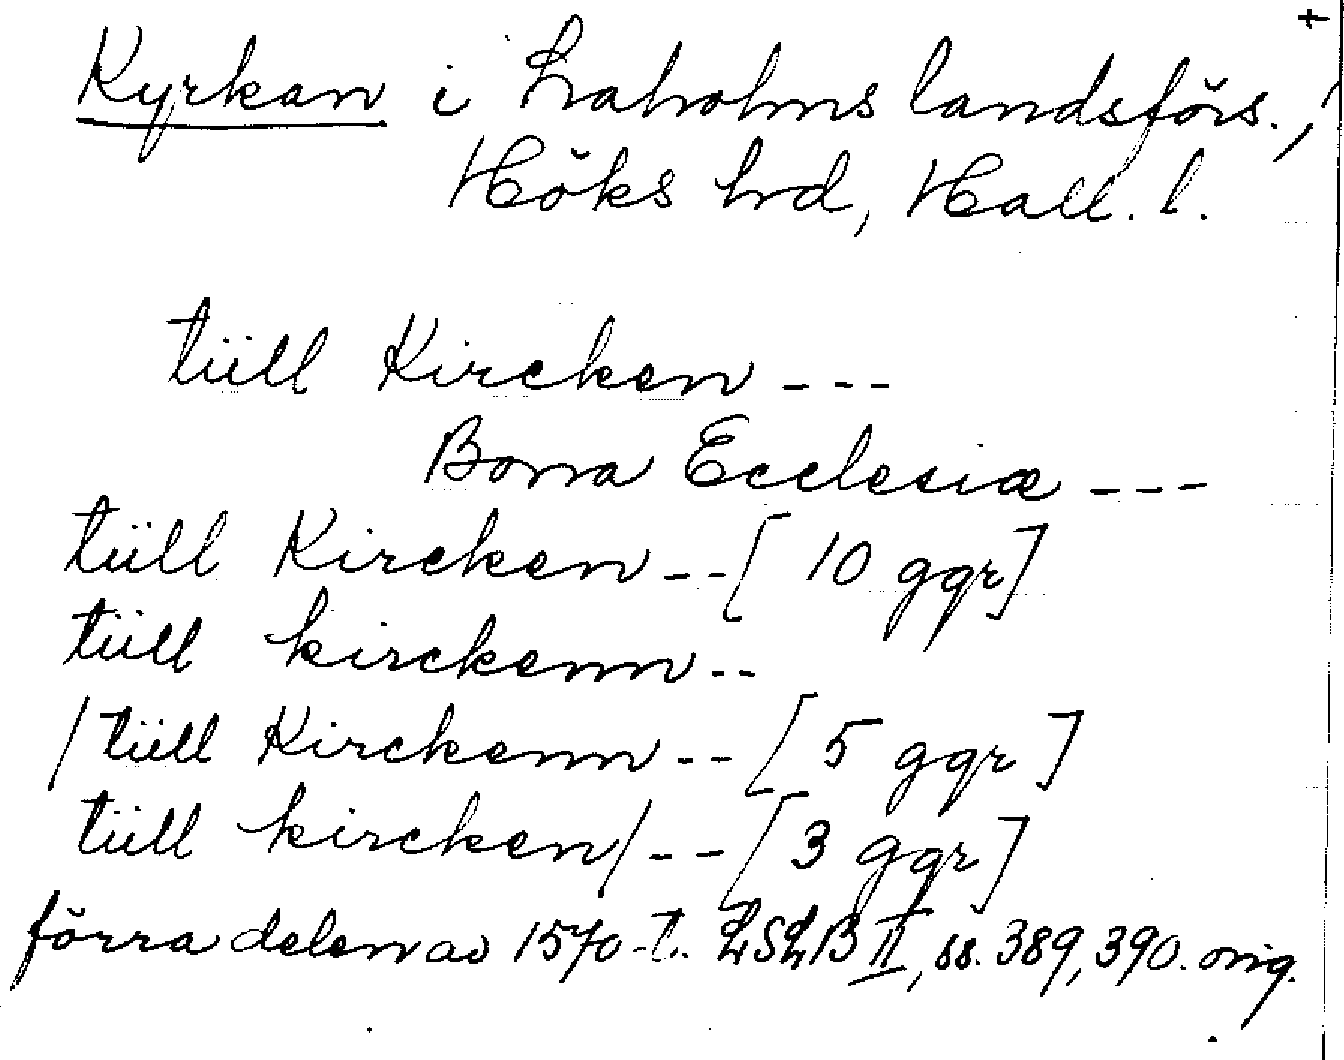 +
Kyrkan i Laholms landsförs.,
Höks hrd, Hall. l.
tiill Kircken ---
Bona Ecclesiæ ---
tiill Kircken --[ 10 ggr]
tiill kirckenn --
/ tiill Kirckenn -- [ 5 ggr ]
tiill kircken/ -- [3 ggr]
förra delen av 1570-t. LSLB II, ss. 389, 390. orig.